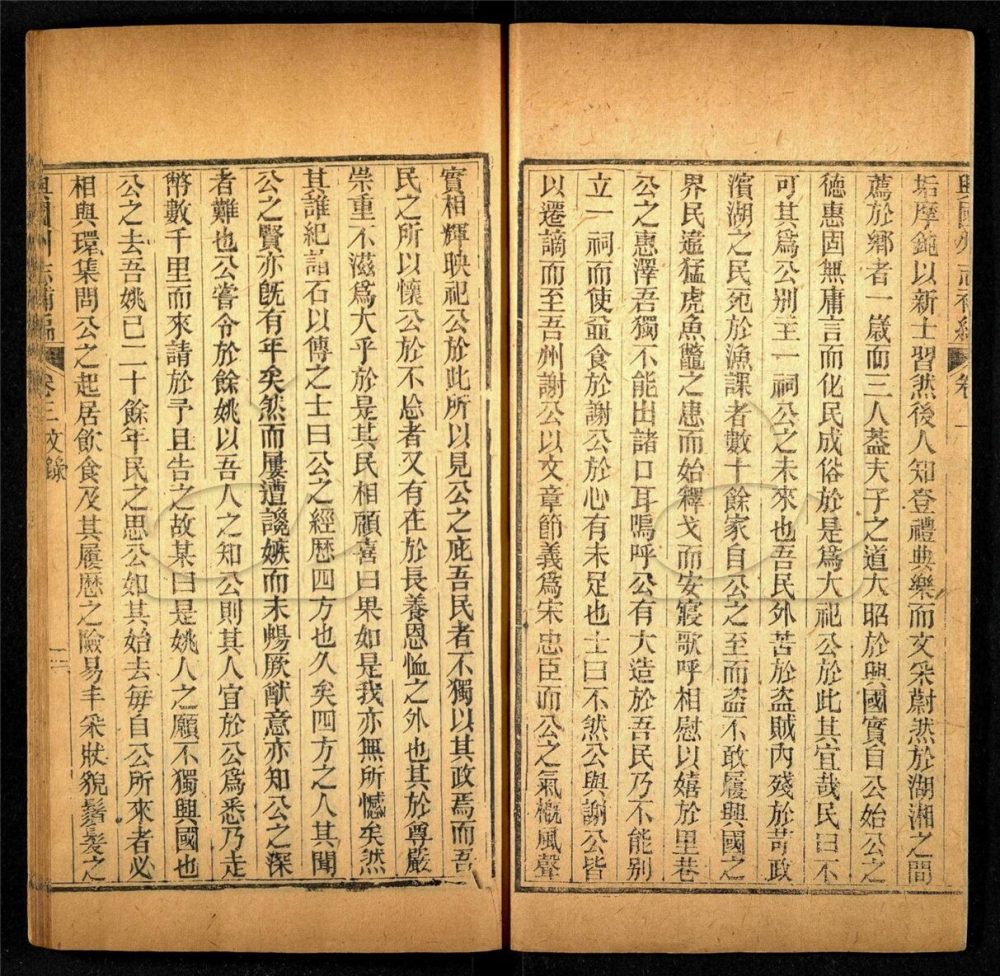 興國州志補編 卷三
垢摩鈍以新士習然後人知登禮典樂而文采蔚然於湖湘之間
薦於鄉者一歲而三人蓋夫子之道大昭於興國實自公始公之
德惠固無庸言而化民成俗於是爲大祀公於此其宜哉民曰不
可其爲公別主一祠公之未來也吾民外苦於盜賊內殘於苛政
濱湖之民死於漁課者數十餘家自公之至而盜不敢履興國之
界民遠猛虎魚鼈之患而始釋戈而安寢歌呼相慰以嬉於里巷
公之惠澤吾獨不能出諸口耳嗚呼公有大造於吾民乃不能別
立一祠而使並食於謝公於心有未足也士曰不然公與謝公皆
以遷謫而至吾州謝公以文章節義爲宋忠臣而公之氣槪風聲
實相輝映祀公於此所以見公之庇吾民者不獨以其政焉而吾
民之所以懷公於不忘者又有在於長養恩恤之外也其於尊嚴
崇重不滋爲大乎於是其民相顧喜曰果如是我亦無所憾矣然
其誰紀詣石以傳之士曰公之經歷四方也久矣四方之人其聞
公之賢亦旣有年矣然而屢遭讒嫉而未暢厥猷意亦知公之深
者難也公嘗令於餘姚以吾人之知公則其人宜於公爲悉乃走
幣數千里而來請於予且告之故某曰是姚人之願不獨興國也
公之去吾姚已二十餘年民之思公如其始去每自公所來者必
相與環集問公之起居飲食及其履歷之險易丰采狀貌鬚髮之
興國州志補編 卷三 文錄 二